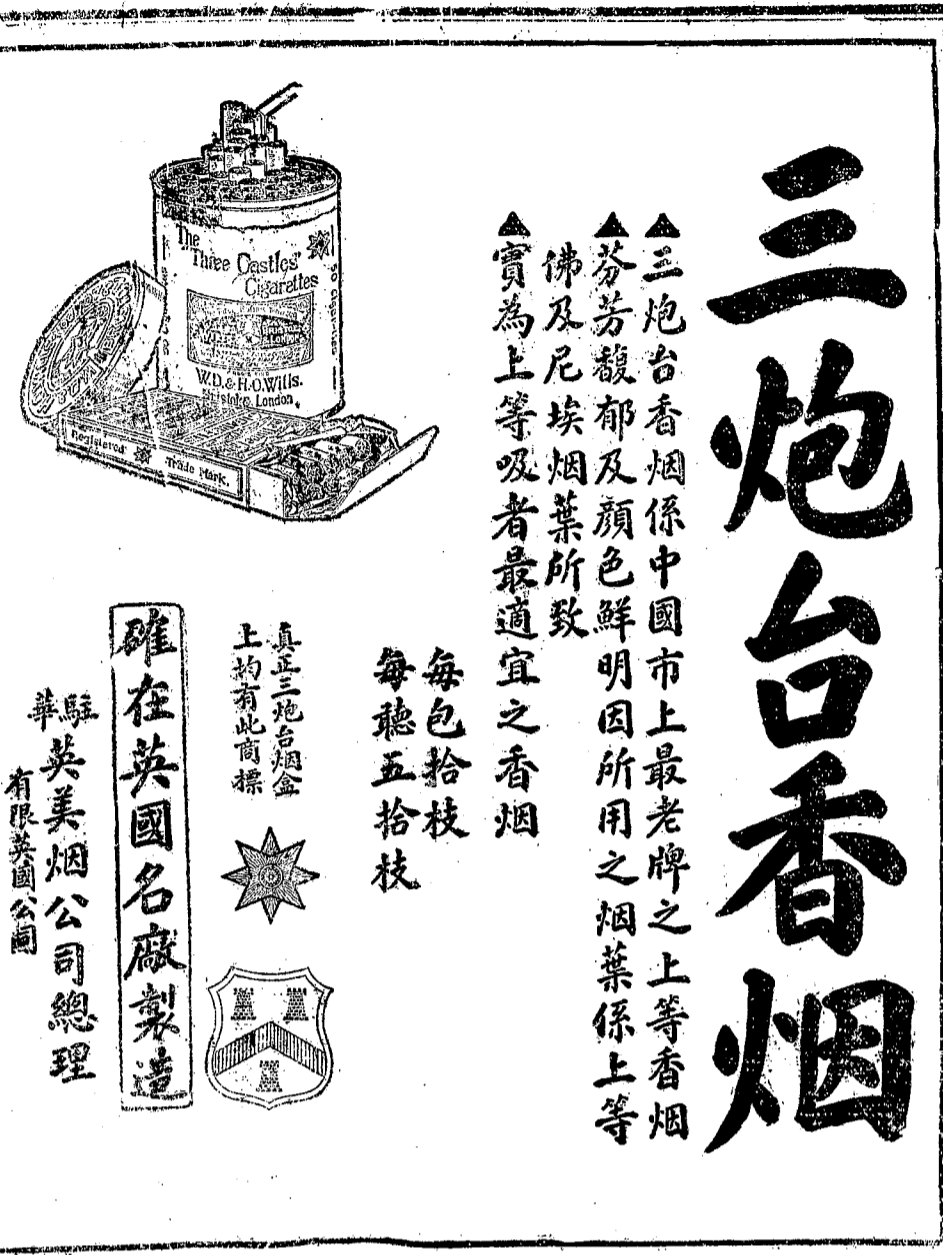 三炮台香烟
▲三炮台香烟係中國市上最老牌之上等香烟
▲芬芳馥郁及顏色鮮明因所用之烟葉係上等
佛及尼埃烟葉所致
▲實為上等吸者最適宜之香烟
每包拾枝
每聽五拾枝
真正三炮台烟盒
上均有此商標
確在英國名廠製造
駐華英美烟公司總理
有限英國公司
The
Three Castles
Cigarettes
BRISTOL & LONDON
W.D. & H.O. Wills.
Bristol & London.
Registered Trade Mark.